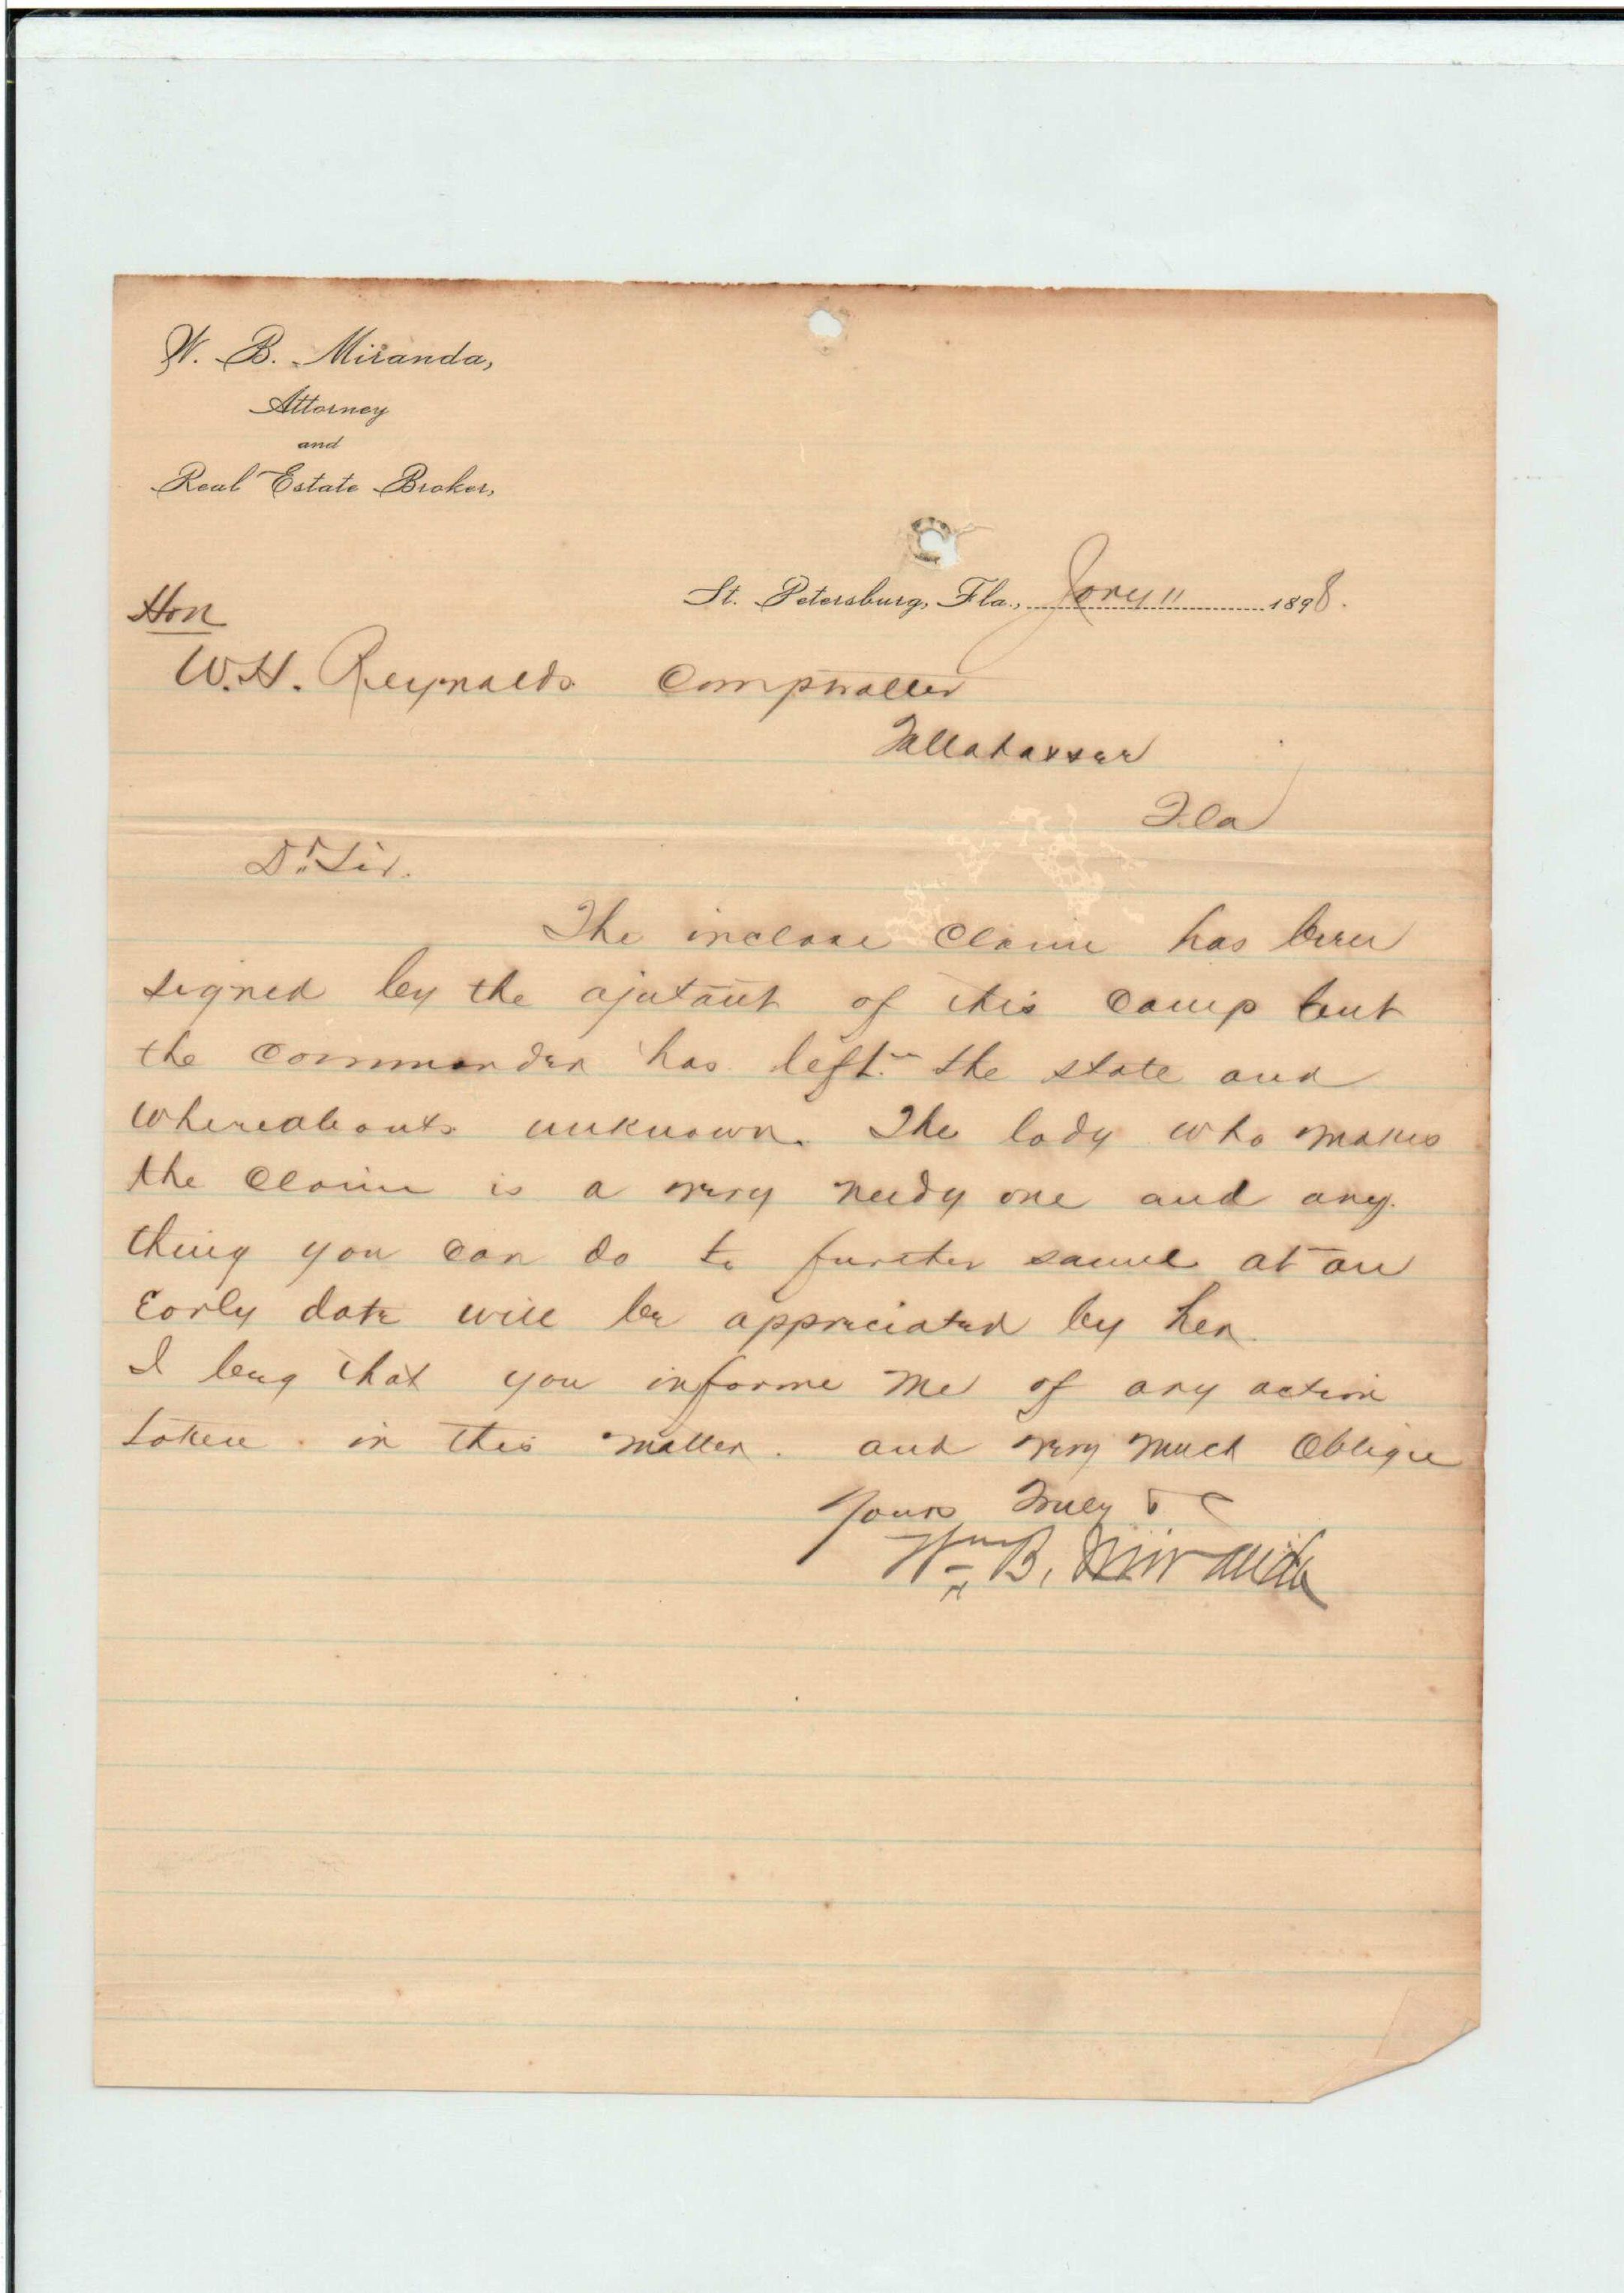 W. B. Miranda,
Attorney
and
Real Estate Broker,
St. Petersburg, Fla., Jany 11 1898.
Hon
W. H. Reynolds Comptroller
Tallahassee
Fla
Dr. Sir.
The inclose claim has been
signed by the ajutant of this camp but
the commander has left the state and
whereabouts unknown. The lady who makes
the claim is a very needy one and any
thing you can do to further same at an
Early date will be appreciated by her.
I beg that you informe me of any action
taken in this matter. and very much Oblige
Yours Truly & C
Wm B. Miranda